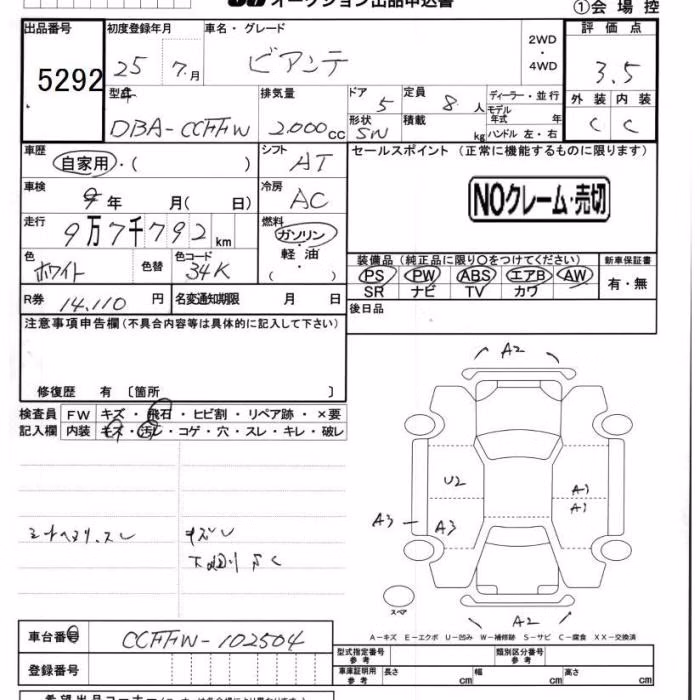 オークション出品申込書
①会場控
出品番号 初度登録年月 車名・グレード 2WD・4WD 評価点
5292 25年 7月 ビアンテ 3.5
型式 排気量 ドア 5 定員 8人 ディーラー・並行 外装 内装
DBA-CCFFW 2,000cc 形状 SW 積載 kg モデル年式 年 ハンドル 左・右 C C
車歴 自家用・( ) シフト AT セールスポイント (正常に機能するものに限ります)
車検 年 月( 日) 冷房 AC NOクレーム・売切
走行 9万7千792km 燃料 ガソリン・軽油・( )
色 ホワイト 色替 色コード 34K 装備品 (純正品に限り○をつけてください) 新車保証書
PS PW ABS エアB AW 有・無
SR ナビ TV カワ
R券 14,110円 名変通知期限 月 日 後日品
注意事項申告欄(不具合内容等は具体的に記入して下さい)
修復歴 有 〔箇所 〕
検査員 FW キズ・飛石・ヒビ割・リペア跡・×要
記入欄 内装 キズ・汚レ・コゲ・穴・スレ・キレ・破レ
A2
U2 A1
A1
A3 A3
シートヘタリ、スレ キズU
下廻りサビ
スペア
A2
A-キズ E-エクボ U-凹み W-補修跡 S-サビ C-腐食 XX-交換済
車台番号 CCFFW-102504 型式指定番号 参考 類別区分番号 参考
登録番号 車庫証明用 参考 長さ cm 幅 cm 高さ cm
希望出品コーナー